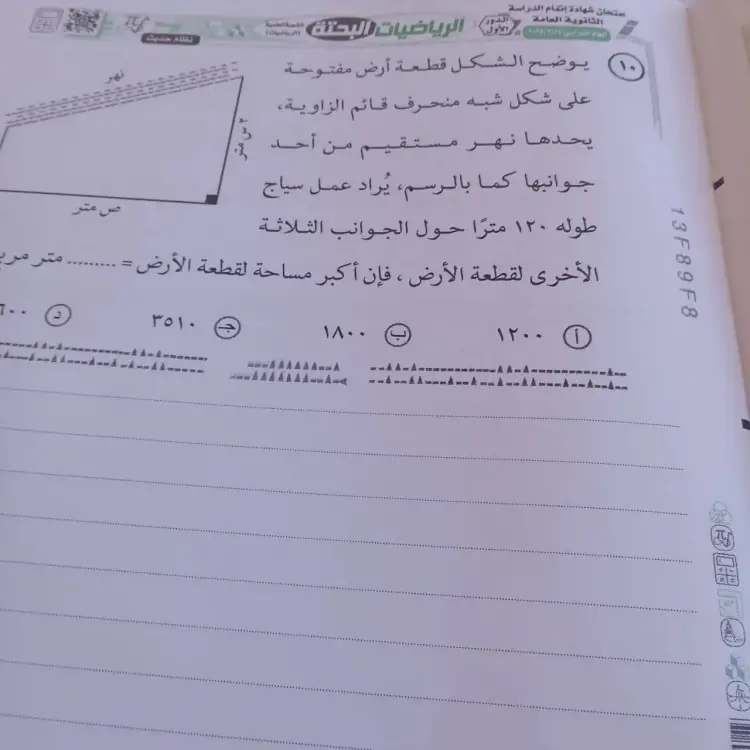 امتحان شهادة إتمام الدراسة
الثانوية العامة
الدور
الأول
الرياضيات البحتة
نظام حديث
١٠ يوضح الشكل قطعة أرض مفتوحة
على شكل شبه منحرف قائم الزاوية،
يحدها نهر مستقيم من أحد
جوانبها كما بالرسم، يُراد عمل سياج
طوله ١٢٠ مترًا حول الجوانب الثلاثة
الأخرى لقطعة الأرض ، فإن أكبر مساحة لقطعة الأرض = ......... متر
نهر
٢ س متر
ص متر
أ ١٢٠٠
ب ١٨٠٠
جـ ٣٥١٠
د
13F89F8